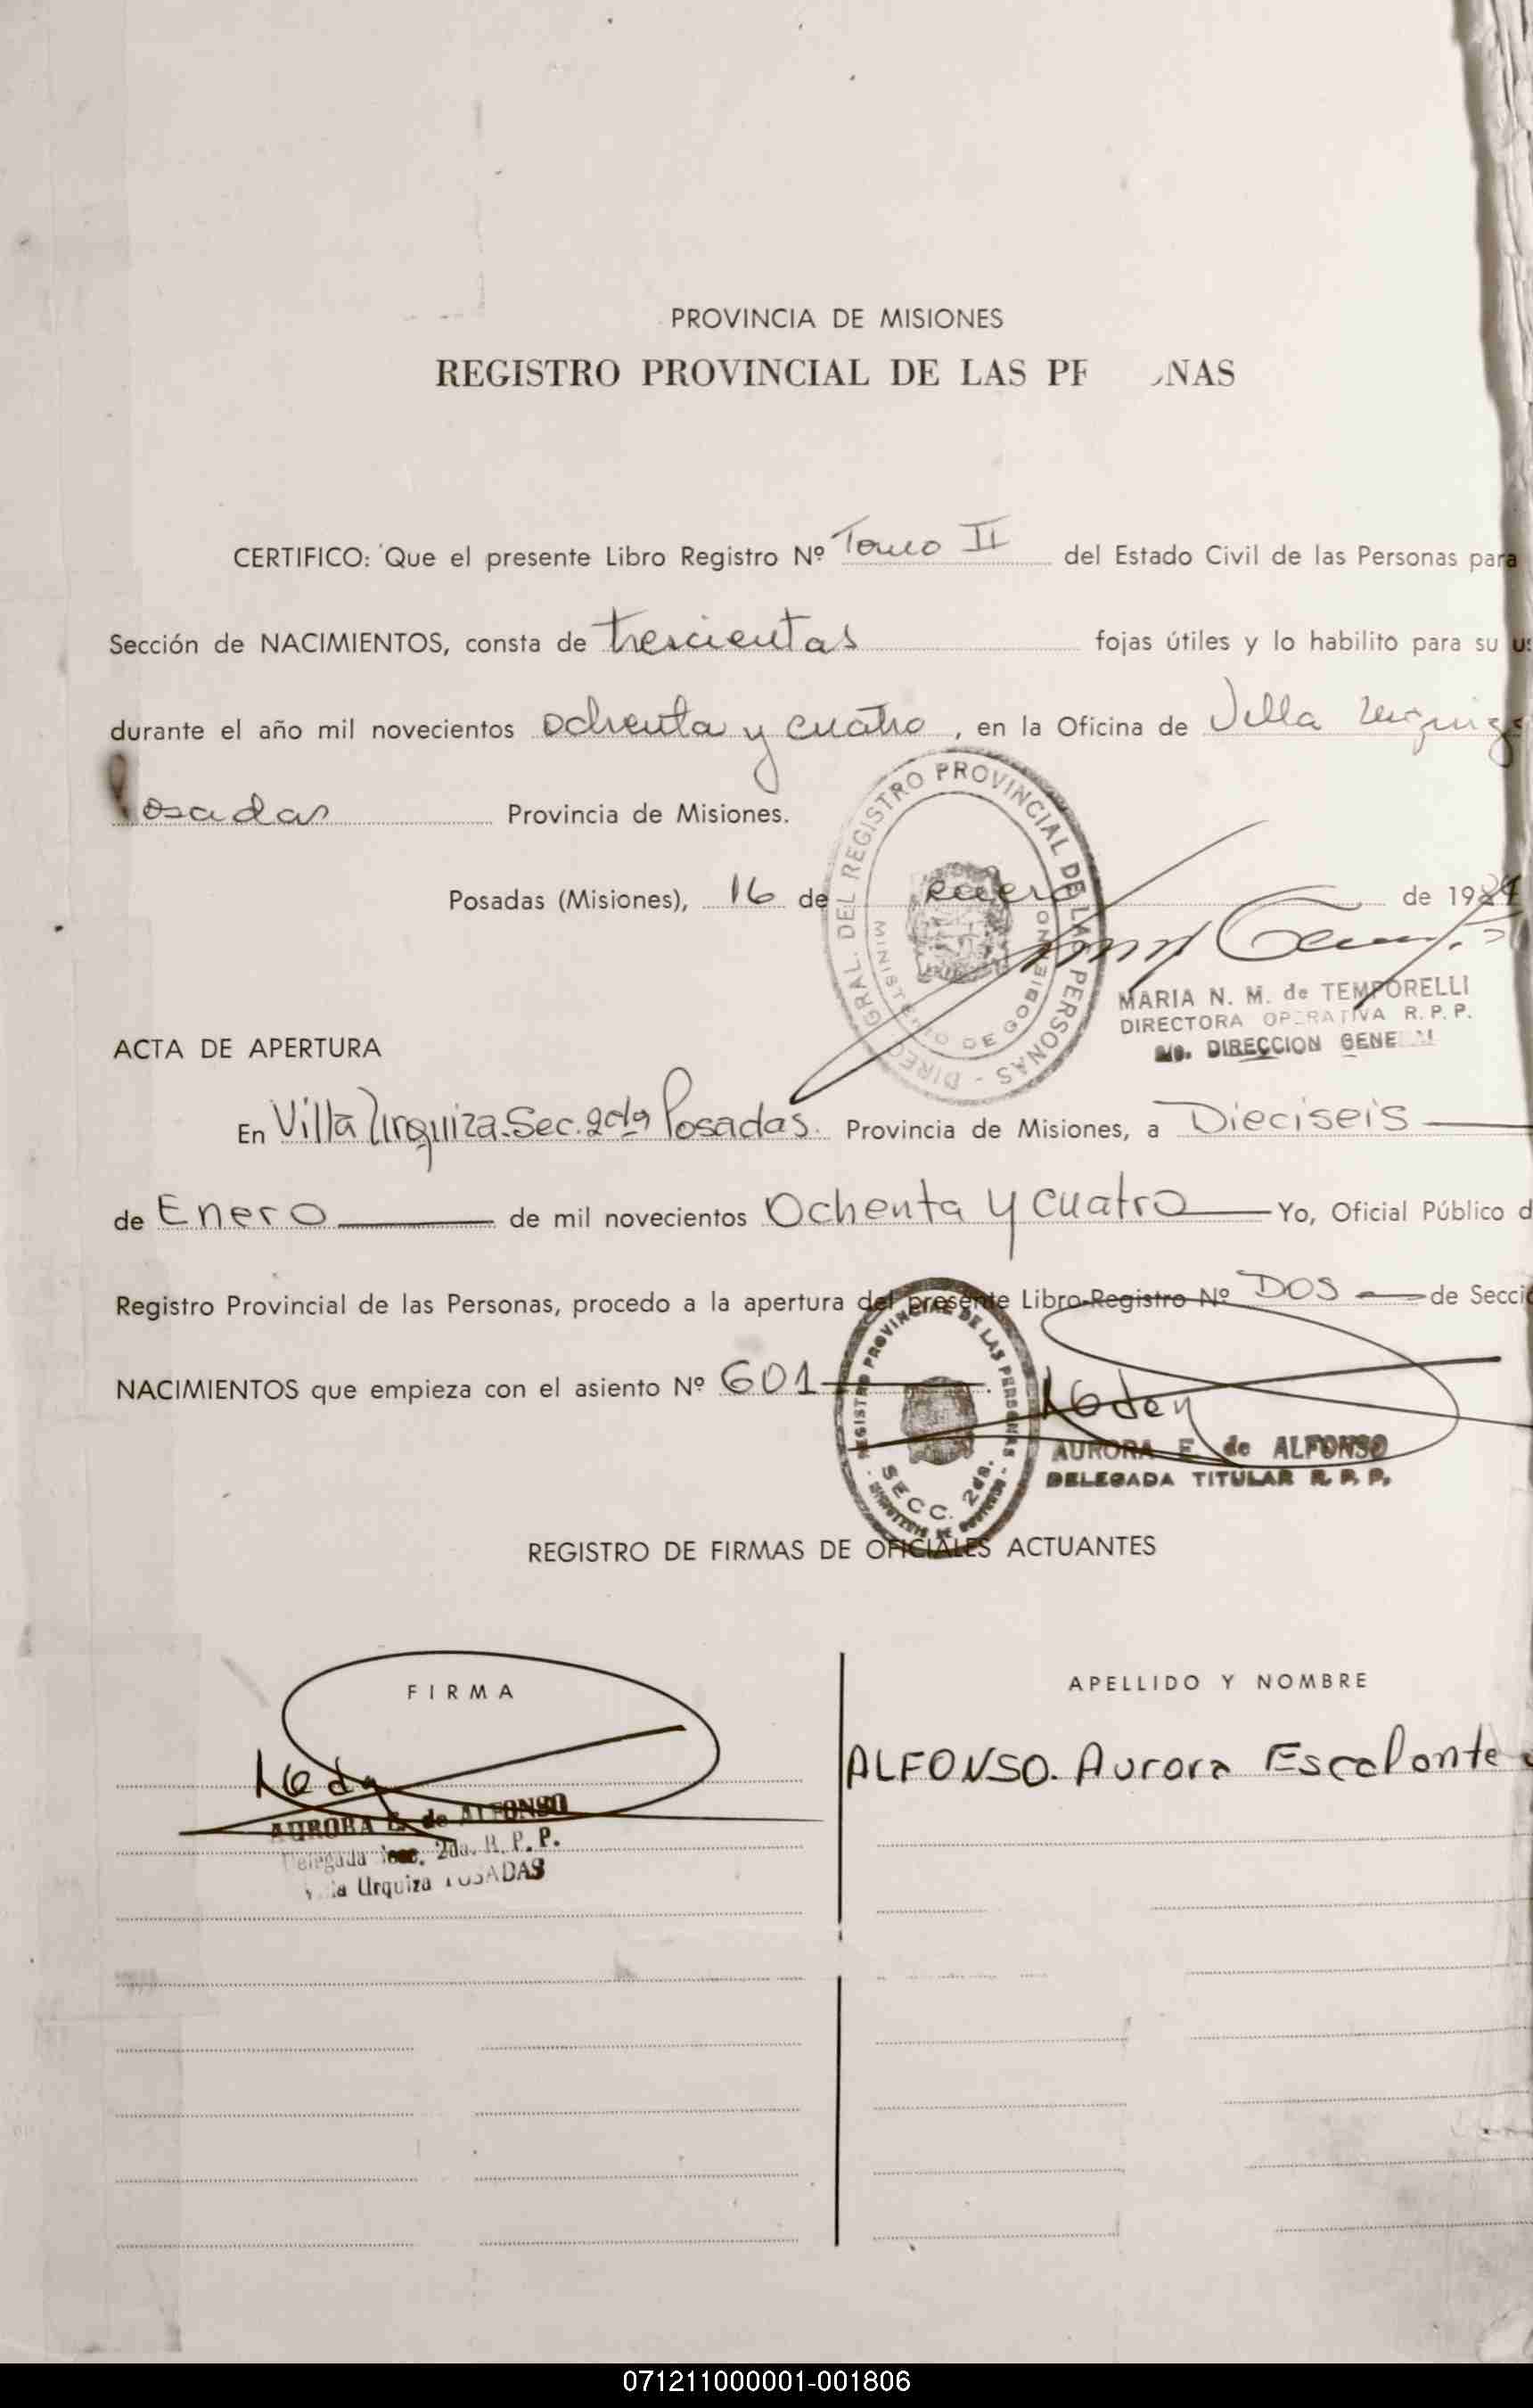 PROVINCIA DE MISIONES
REGISTRO PROVINCIAL DE LAS PE ONAS
CERTIFICO: Que el presente Libro Registro Nº Tomo II del Estado Civil de las Personas para
Sección de NACIMIENTOS, consta de trescientas fojas útiles y lo habilito para su us
durante el año mil novecientos ochenta y cuatro, en la Oficina de Villa Urquiza
Posadas Provincia de Misiones.
Posadas (Misiones), 16 de enero de 1984
DIREC GRAL. DEL REGISTRO PROVINCIAL DE LAS PERSONAS -
MINISTERIO DE GOBIERNO
MARIA N. M. de TEMPORELLI
DIRECTORA OPERATIVA R. P. P.
a/c. DIRECCION GENERAL
ACTA DE APERTURA
En Villa Urquiza. Sec. 2da Posadas. Provincia de Misiones, a Dieciseis
de Enero de mil novecientos Ochenta y cuatro Yo, Oficial Público d
Registro Provincial de las Personas, procedo a la apertura del presente Libro-Registro Nº DOS de Secció
NACIMIENTOS que empieza con el asiento Nº 601.
REGISTRO PROVINCIAL DE LAS PERSONAS
SECC. 2da.
MINISTERIO DE GOBIERNO
AURORA E. de ALFONSO
DELEGADA TITULAR R. P. P.
REGISTRO DE FIRMAS DE OFICIALES ACTUANTES
FIRMA
APELLIDO Y NOMBRE
ALFONSO. Aurora Escalante
AURORA E. de ALFONSO
Delegada Secc. 2da. R. P. P.
Villa Urquiza POSADAS
071211000001-001806